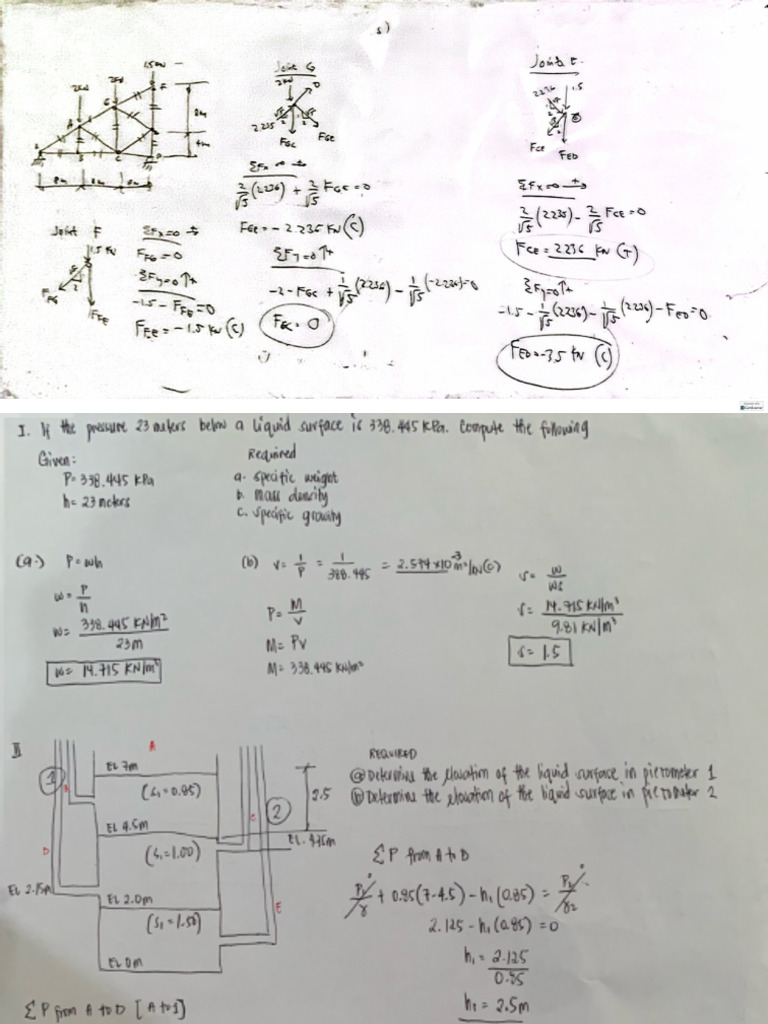 5)
1.5KN
2KN
2KN
F
G
C
2m
2m
2m
2m
Joint F
1.5 KN
F_FG
2
F_FE
ΣFx=0 →+
F_FG=0
ΣFy=0↑+
-1.5 - F_FE=0
F_FE = -1.5 KN (C)
Joint G
2KN
0
2.235
√5
2
√5
2
F_GC
F_GE
ΣFx=0 →+
2/√5 (2.236) + 2/√5 F_GE = 0
F_GE = -2.236 KN (C)
ΣFy=0↑+
-2 - F_GC + 1/√5 (2.236) - 1/√5 (-2.236)=0
F_GC = 0
Joint E
2.236
1.5
F_CE
F_ED
ΣFx=0 →+
2/√5 (2.235) - 2/√5 F_CE = 0
F_CE = 2.236 KN (T)
ΣFy=0↑+
-1.5 - 1/√5 (2.236) - 1/√5 (2.236) - F_ED = 0
F_ED = -3.5 KN (C)
I. If the pressure 23 meters below a liquid surface is 338.445 KPa. Compute the following
Given:
P= 338.445 KPa
h= 23 meters
Required
a. specific weight
b. mass density
c. specific gravity
(a.) P = wh
w = P/h
w= 338.445 KN/m² / 23m
w= 14.715 KN/m³
(b) v = 1/P = 1/388.445 = 2.574 x10⁻³ m³/
P = M/V
M = PV
M = 338.445 KN/m²
s = w/ws
s = 14.715 KN/m³ / 9.81 KN/m³
s = 1.5
II
A
1
B
EL 7m
(S₁ = 0.85)
2
C
2.5
EL 4.5m
D
(S₁ = 1.00)
EL 2.0m
E
(S₁ = 1.50)
EL 0m
REQUIRED
ⓐ Determine the elevation of the liquid surface in piezometer 1
ⓑ Determine the elevation of the liquid surface in piezometer 2
ΣP from A to D
+ 0.85(7-4.5) - h₁(0.85) =
2.125 - h₁(0.85) = 0
h₁ = 2.125 / 0.85
h₁ = 2.5m
ΣP from A to D [A to 1]